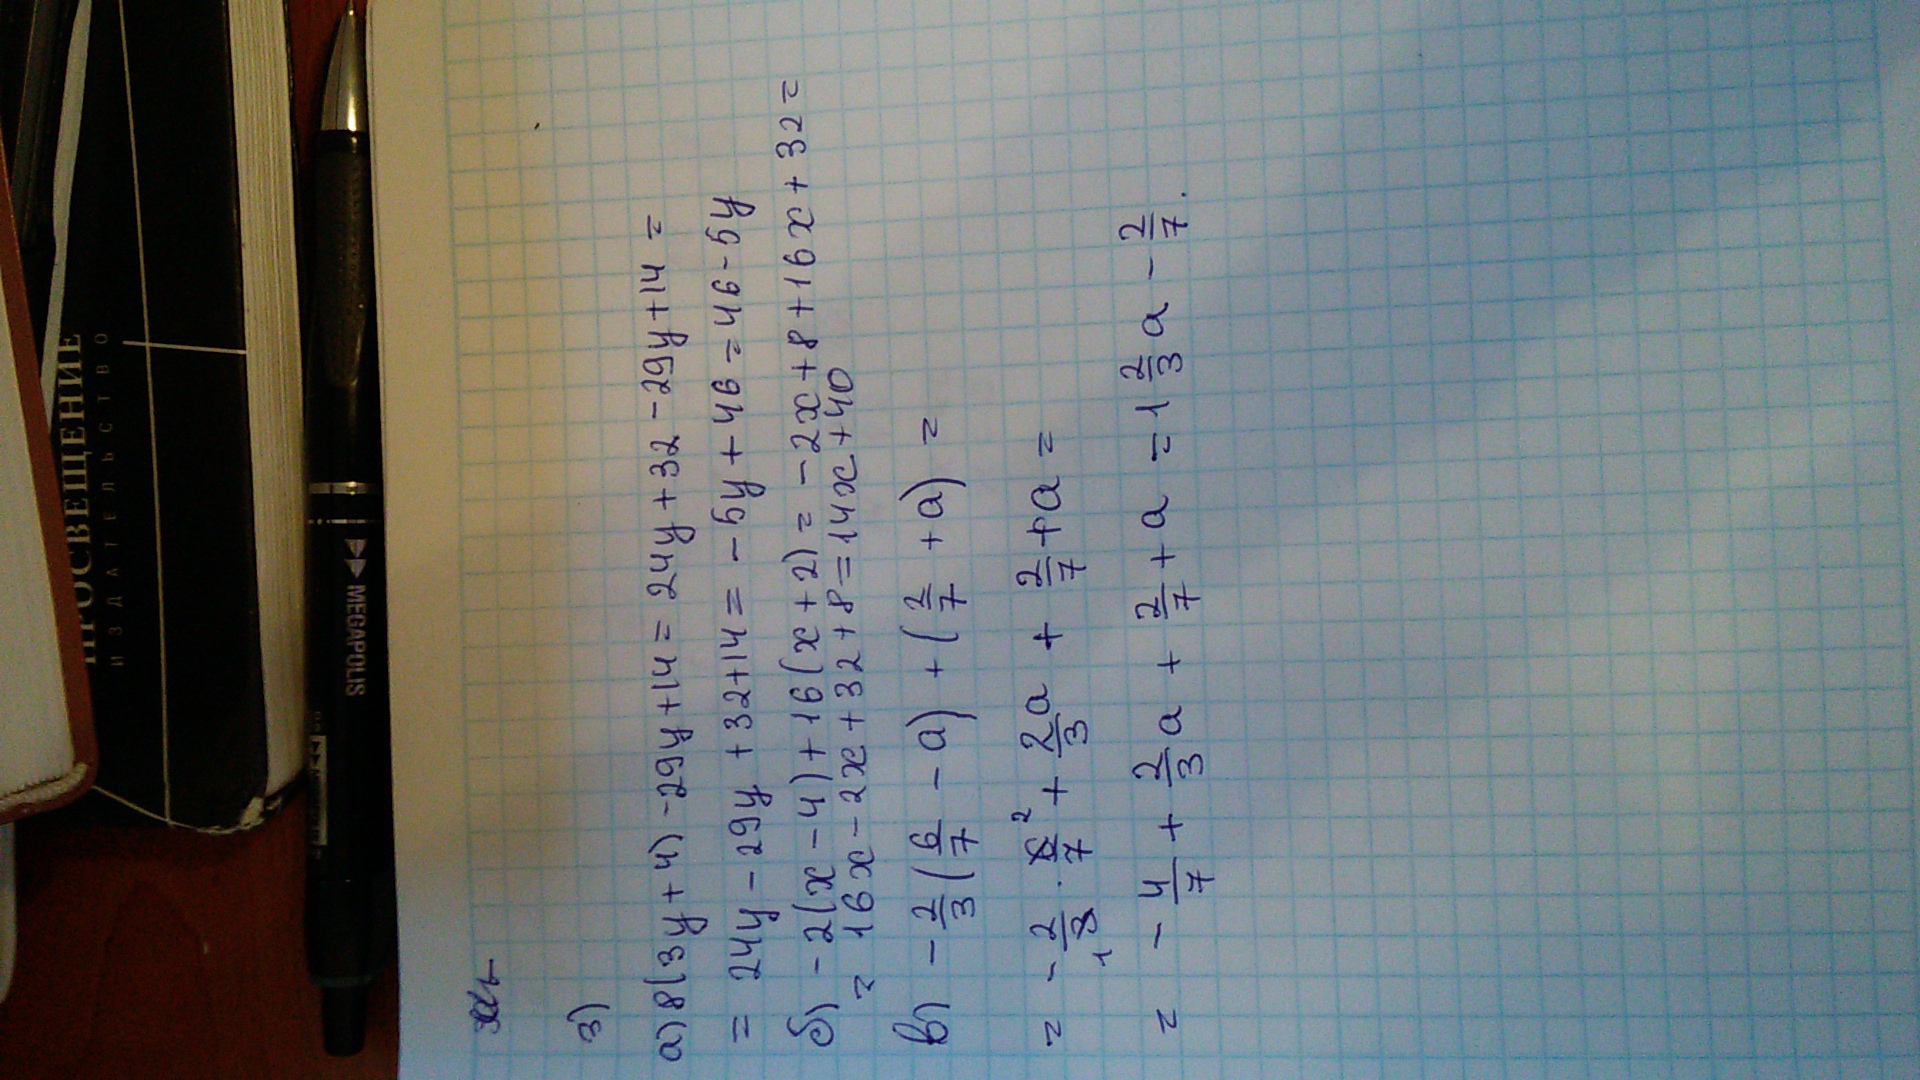 ПРОСВЕЩЕНИЕ
ИЗДАТЕЛЬСТВО
MEGAPOLIS
3)
а) 8(3y+4)-29y+14=24y+32-29y+14=
=24y-29y+32+14=-5y+46=46-5y
б) -2(x-4)+16(x+2)=-2x+8+16x+32=
=16x-2x+32+8=14x+40
в) -2/3(6/7-a)+(2/7+a)=
=-2/3·6/7+2a/3+2/7+a=
=-4/7+2/3a+2/7+a=1 2/3a-2/7.